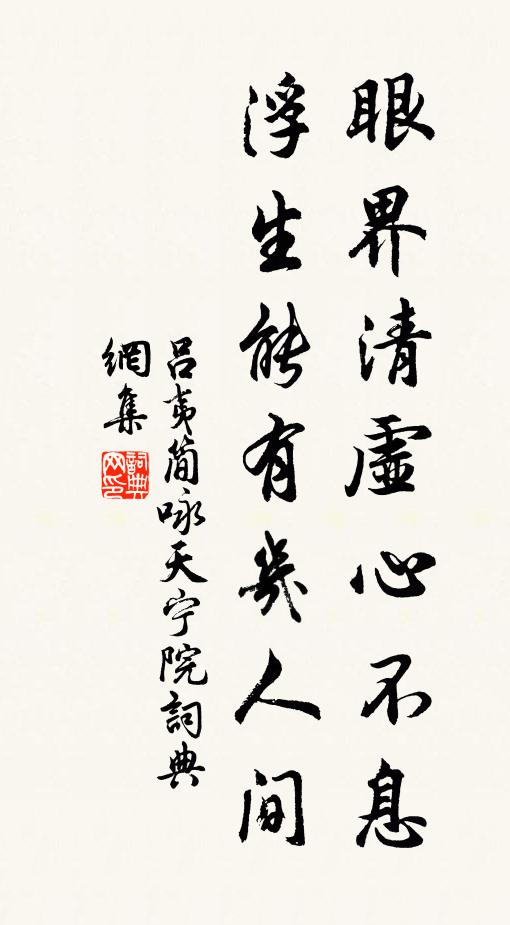 眼界清虛心不息
浮生能有幾人间
呂夷简咏天宁院詞典
網集
詞典
网印